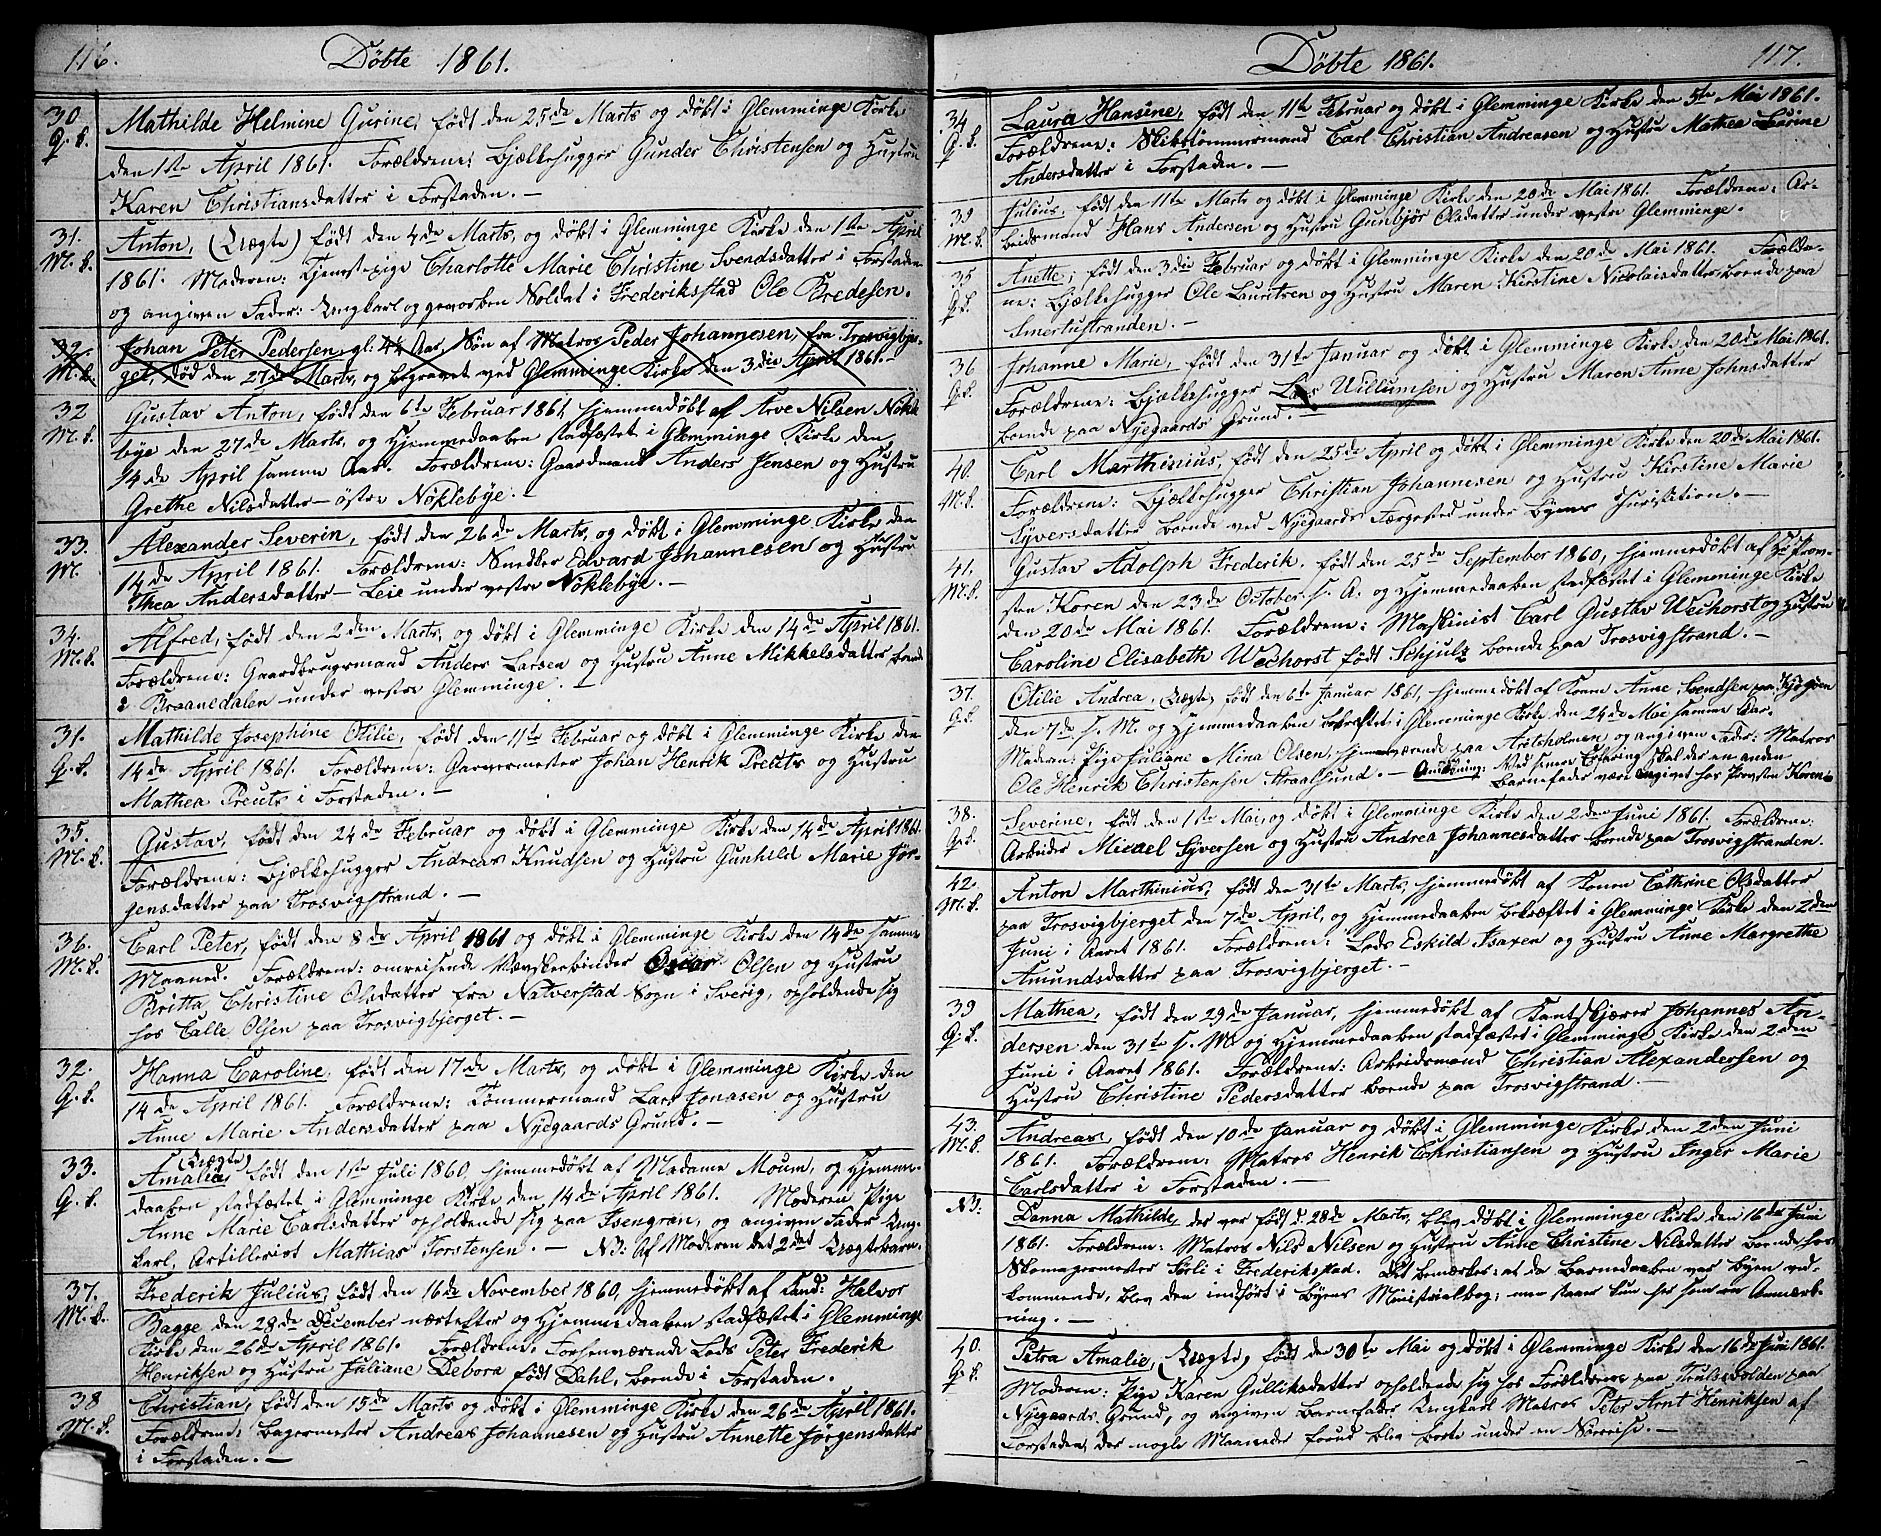 116.
Døbte 1861.
30. Mathilde Helmine Gurine, født den 25de Marts og døbt i Glemminge Kirke
Q. k. den 1ste April 1861. Forældrene: Bjelkehugger Gunder Christensen og Hustru
Karen Christiansdatter i Forstaden. —
31. Anton, (Uægte) født den 4de Marts, og døbt i Glemminge Kirke den 1ste April
M. k. 1861. Moderen: Tjenestepige Charlotte Marie Christine Svendsdatter i Forstaden
og angiven Fader: Ungkarl og geworben Soldat i Frederiksstad Ole Bredesen.
32. Johan Peter Pedersen, gl: 4¼ Aar, Søn af Matros Peder Johannesen, fra Trosvigbjer-
M. k. get, død den 27de Marts, og begravet ved Glemminge Kirke den 3die April 1861. —
32 Gustav Anton, født den 6te Februar 1861, hjemmedøbt af Arve Nilsen Nøkle-
M. k. bye den 27de Marts, og Hjemmedaaben stadfæstet i Glemminge Kirke den
14de April samme Aar. Forældrene: Gaardmand Anders Jensen og Hustru
Grethe Nilsdatter — østre Nøklebye. —
33. Alexander Severin, født den 26de Marts, og døbt i Glemminge Kirke den
M. 14de April 1861. Forældrene: Snedker Edvard Johannesen og Hustru
Thea Andersdatter — Leie under vestre Nøklebye. —
34. Alfred, født den 2den Marts, og døbt i Glemminge Kirke den 14de April 1861.
M. k. Forældrene: Gaardbrugermand Anders Larsen og Hustru Anne Mikkelsdatter boende
i Braanedalen under vestre Glemminge. —
31. Mathilde Josephine Otilie, født den 11te Februar og døbt i Glemminge Kirke den
Q. k. 14de April 1861. Forældrene: Garvermester Johan Henrik Preuts og Hustru
Mathea Preuts i Forstaden. —
35. Gustav, født den 24de Februar og døbt i Glemminge Kirke den 14de April 1861.
M. k. Forældrene: Bjelkehugger Andreas Knudsen og Hustru Gunhild Marie Jør-
gensdatter paa Trosvigstrand. —
36. Carl Peter, født den 8de April 1861 og døbt i Glemminge Kirke den 14de samme
M. k. Maaned. Forældrene: omreisende Vævskeebinder Oscar Olsen og Hustru
Britta Christine Olsdatter fra Natverstad Sogn i Sverig, opholdende sig
hos Calle Olsen paa Trosvigbjerget. —
32. Hanna Caroline, født den 17de Marts, og døbt i Glemminge Kirke den
Q. k. 14de April 1861. Forældrene: Tømmermand Lars Jonasen og Hustru
Anne Marie Andersdatter paa Nyegaards Grund. —
(Uægte)
33. Amalia, født den 1ste Juli 1860, hjemmedøbt af Madame Moum, og Hjemme-
Q. k. daaben stadfæstet i Glemminge Kirke den 14de April 1861. Moderen Pige
Anne Marie Carlsdatter opholdende sig paa Isengran, og angiven Fader Ung-
karl, Artillerist Mathias Torstensen. — NB: Af Moderen det 2det Uægtebarn.
37. Frederik Julius, født den 16de November 1860, hjemmedøbt af Cand: Halvor
M. k. Bagge den 28de December næstefter og Hjemmedaaben stadfæstet i Glemminge
Kirke den 26de April 1861. Forældrene: Forhenværende Lods Peter Frederik
Henriksen og Hustru Juliane Debora født Dahl, boende i Forstaden.
38 Christian, født den 15de Marts og døbt i Glemminge Kirke den 26de April 1861.
M. k. Forældrene: Bagermester Andreas Johannesen og Hustru Annette Jørgensdatter
i Forstaden. —
Døbte 1861.
117.
34. Laura Hansine, født den 11te Februar og døbt i Glemminge Kirke den 5te Mai 1861.
Q. k. Forældrene: Skibstømmermand Carl Christian Andreasen og Hustru Mathea Laurine
Andersdatter i Forstaden. —
39 Julius, født den 11te Marts og døbt i Glemminge Kirke den 20de Mai 1861. Forældrene: Ar-
M. k. beidsmand Hans Andersen og Hustru Gunbjør Olsdatter under vestre Glemminge.
35 Anette, født den 3die Februar og døbt i Glemminge Kirke den 20de Mai 1861. Forældre-
Q. k. ne: Bjelkehugger Ole Lauritsen og Hustru Maren Kirstine Nicolaisdatter, boende paa
Smertustranden. —
36 Johanne Marie, født den 31te Januar og døbt i Glemminge Kirke den 20de Mai 1861.
Q. k. Forældrene: Bjelkehugger Lars Willumsen og Hustru Maren Anne Johnsdatter
boende paa Nyegaards Grund. —
40. Carl Marthinius, født den 25de April og døbt i Glemminge Kirke den 20de Mai 1861.
M. k. Forældrene: Bjelkehugger Christian Johannesen og Hustru Kirstine Marie
Syversdatter boende ved Nyegaards Færgested under Byens Jurisdition. —
41. Gustav Adolph Frederik, født den 25de September 1860, hjemmedøbt af Hr Prov-
M. k. sten Koren den 23de October s. A. og Hjemmedaaben stadfæstet i Glemminge Kirke
den 20de Mai 1861. Forældrene: Maskinist Carl Gustav Wechorst og Hustru
Caroline Elisabeth Wechorst født Schjulz boende paa Trosvigstrand. —
37. Otilie Andrea, (Uægte) født den 6te Januar 1861, hjemmedøbt af Konen Anne Svendsen paa Kjøgøen
Q. k. den 7de s. M. og Hjemmedaaben bekræftet i Glemminge Kirke den 24de Mai samme Aar.
Moderen: Pige Juliane Mina Olsen, hjemmeværende paa Aristeholmen og angiven Fader: Matros
Ole Henrik Christensen Straalsund. — Anmærkning: Med senere Erfaring skal der en anden
Barnefader være angivet hos Provsten Koren.
38. Severine, født den 1ste Mai, og døbt i Glemminge Kirke den 2den Juni 1861. Forældrene:
Q. k. Arbeider Micael Syversen og Hustru Andrea Johannesdatter boende paa Trosvigstranden.
42. Anton Marthinius, født den 31te Marts, hjemmedøbt af Konen Cathrine Olsdatter
M. k. paa Trosvigbjerget den 7de April, og Hjemmedaaben bekræftet i Glemminge Kirke den 2den
Juni i Aaret 1861. Forældrene: Lods Eskild Isaxen og Hustru Anne Margrethe
Amundsdatter paa Trosvigbjerget. —
39 Mathea, født den 29de Januar, hjemmedøbt af Kantskjærer Johannes An-
Q. k. dersen den 31te s. M. og Hjemmedaaben stadfæstet i Glemminge Kirke den 2den
Juni i Aaret 1861. Forældrene: Arbeidsmand Christian Alexandersen og
Hustru Christine Pedersdatter boende paa Trosvigstrand. —
43. Andreas, født den 10de Januar og døbt i Glemminge Kirke den 2den Juni
M. k. 1861. Forældrene: Matros Henrik Christiansen og Hustru Inger Marie
Carlsdatter i Forstaden. —
NB: Danna Mathilde, der var født d. 28de Marts, blev døbt i Glemminge Kirke den 16de Juni
1861. Forældrene: Matros Nils Nilsen og Hustru Anne Christine Nilsdatter boende hos
Skomagermester Sørli i Frederikstad. Det bemærkes: at da Barnedaaben var Byen ved-
kommende, blev den indført i Byens Ministrialbog; men staaer kun her som en Anmærk-
ning. —
40. Petra Amalie, (Uægte) født den 30te Mai og døbt i Glemminge Kirke den 16de Juni 1861.
Q. k. Moderen: Pige Karen Gulliksdatter opholdende sig hos Forældrene paa Trulsvolden paa
Nyegaards Grund, og angiven Barnefader Ungkarl Matros Peter Arnt Henriksen af
Forstaden, der nogle Maaneder forud blev borte under en Nørreise. —